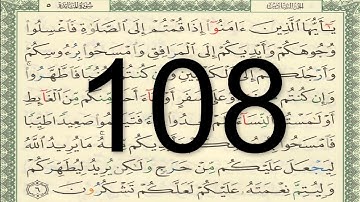 سورة المائدة ٥
يَٰٓأَيُّهَا ٱلَّذِينَ ءَامَنُوٓا۟ إِذَا قُمْتُمْ إِلَى ٱلصَّلَوٰةِ فَٱغْسِلُوا۟
وُجُوهَكُمْ وَأَيْدِيَكُمْ إِلَى ٱلْمَرَافِقِ وَٱمْسَحُوا۟ بِرُءُوسِكُمْ
وَأَرْجُلَكُمْ إِلَى ٱلْكَعْبَيْنِ وَإِن كُنتُمْ جُنُبًا فَٱطَّهَّرُوا۟
وَإِن كُنتُم سَفَرٍ أَوْ جَآءَ أَحَدٌ مِّنكُم مِّنَ ٱلْغَآئِطِ
أَوْ لَٰمَسْتُمُ ٱلنِّسَآءَ صَعِيدًا طَيِّبًا
108
مَا يُرِيدُ ٱللَّهُ
لِيَجْعَلَ عَلَيْكُم مِّنْ حَرَجٍ وَلَٰكِن يُرِيدُ لِيُطَهِّرَكُمْ
وَلِيُتِمَّ نِعْمَتَهُۥ عَلَيْكُمْ لَعَلَّكُمْ تَشْكُرُونَ ٦